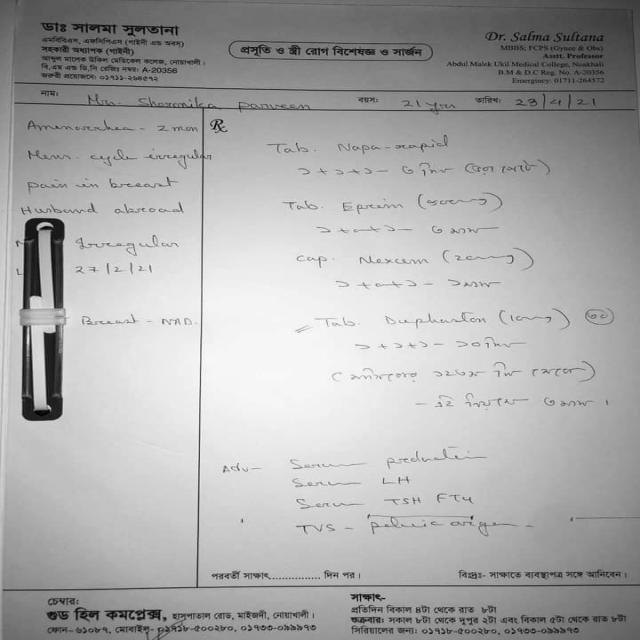 ডাঃ সালমা সুলতানা
এমবিবিএস, এফসিপিএস (গাইনী এন্ড অবস)
সহকারী অধ্যাপক (গাইনী)
আব্দুল মালেক উকিল মেডিকেল কলেজ, নোয়াখালী।
বি.এম এন্ড ডি.সি রেজিঃ নম্বর: A-20356
জরুরী প্রয়োজনে: ০১৭১১-২৬৪৫৭২
প্রসূতি ও স্ত্রী রোগ বিশেষজ্ঞ ও সার্জন
Dr. Salma Sultana
MBBS; FCPS (Gynee & Obs)
Asstt. Professor
Abdul Malek Ukil Medical College, Noakhali
B.M & D.C Reg. No. A-20356
Emergency: 01711-264572
নাম: Mrs. Sharmika parveen বয়স: 21 yrs তারিখ: 23/4/21
Amenorrhea - 2 mon
Mens. cycle irregular
pain in breast
Husband abroad
Irregular
27/2/21
Breast - NAD.
Rx
Tab. Napa-rapid
১+১+১ - ৩ দিন
Tab. Eprim
১+০+১ - ৩ মাস
Cap. Nexcem (20mg)
১+০+১ - ১মাস
Tab. Duphaston (10mg) ৩০
১+১+১ - ১০ দিন
(মাসিকের ১৬তম দিন থেকে)
- এই নিয়মে ৩ মাস।
Adv - Serum prolactin
Serum LH
Serum TSH FT4
TVS - pelvic organ
পরবর্তী সাক্ষাৎ.............. দিন পর।
বিঃদ্রঃ- সাক্ষাতে ব্যবস্থাপত্র সঙ্গে আনিবেন।
চেম্বার:
গুড হিল কমপ্লেক্স, হাসপাতাল রোড, মাইজদী, নোয়াখালী।
ফোন- ৬১০৮৭, মোবাইল- ০১৭১৮-৫০০২৮০, ০১৭৩৩-০৯৯৯৭৩
সাক্ষাৎ-
প্রতিদিন বিকাল ৪টা থেকে রাত ৮টা
শুক্রবার: সকাল ৮টা থেকে দুপুর ২টা এবং বিকাল ৫টা থেকে রাত ৮টা
সিরিয়ালের জন্য: ০১৭১৮-৫০০২৮০, ০১৭৩৩-০৯৯৯৭৩